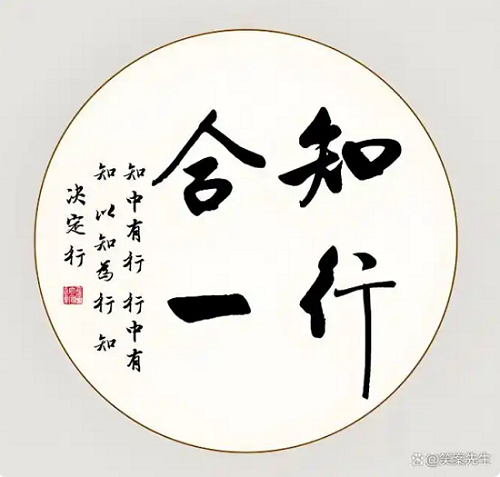 知行
合一
知中有行 行中有
知 以知為行 知
决定行
笑案先生